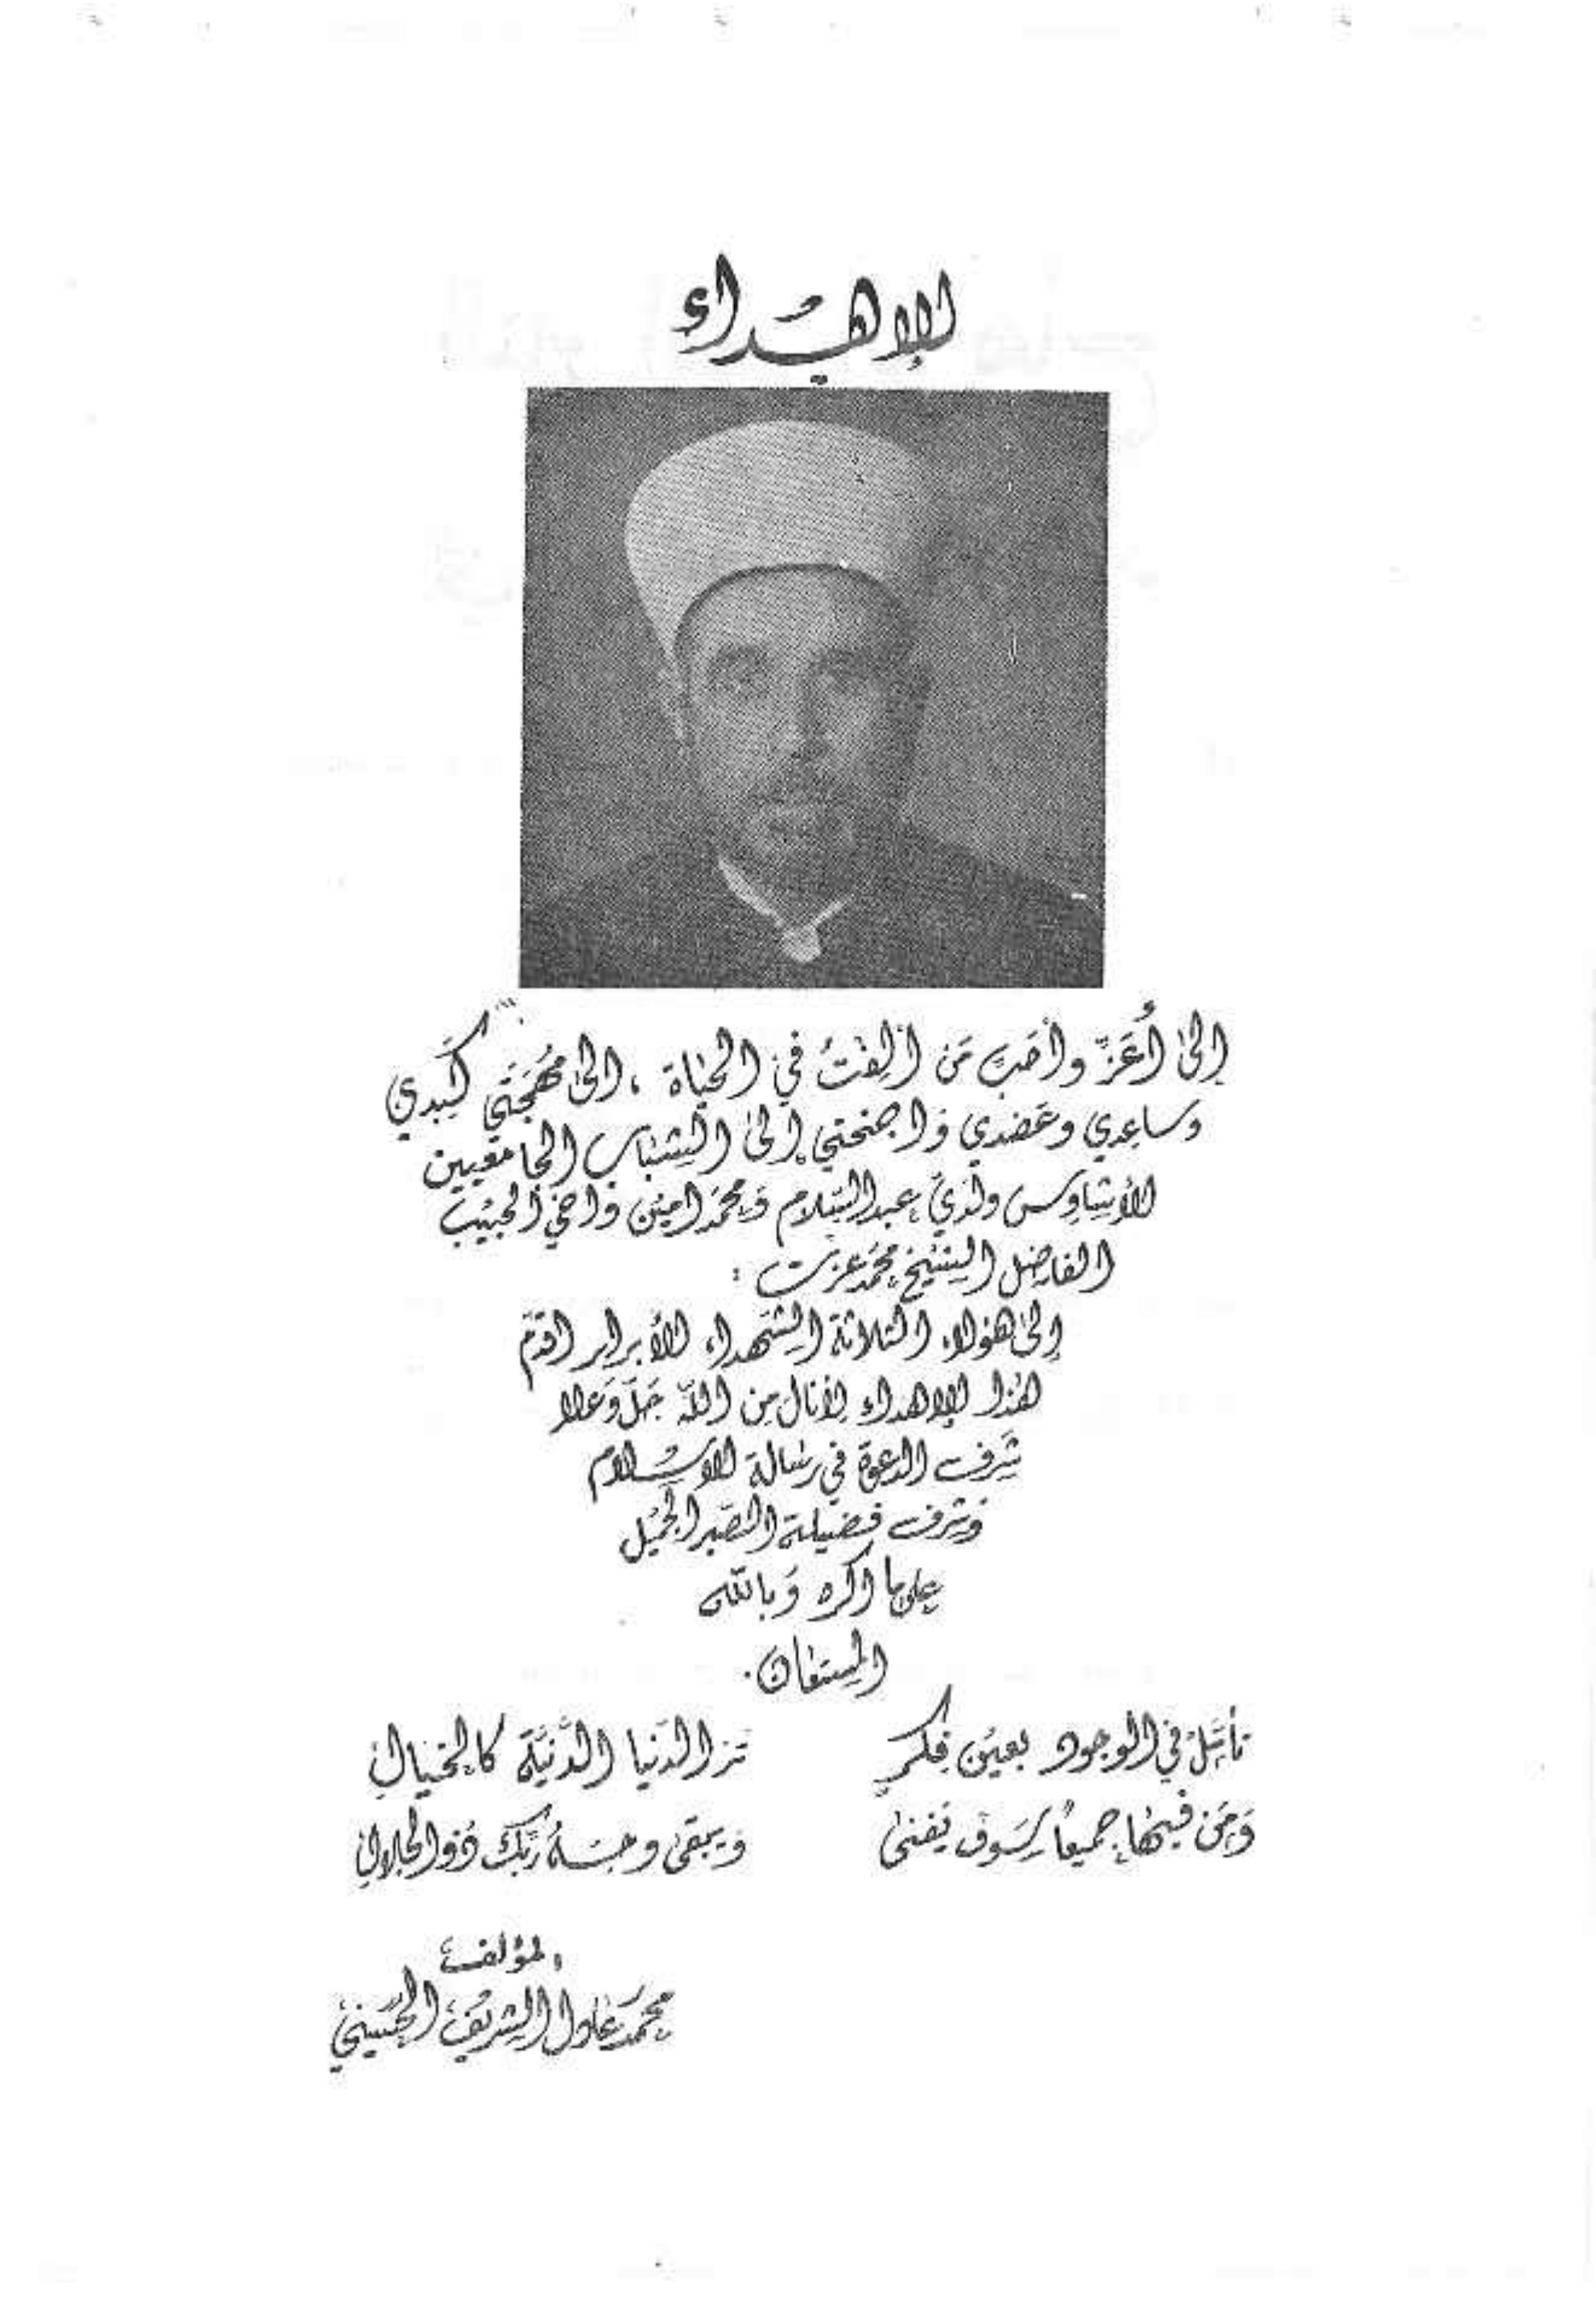 الإهداء
إلى أعز وأحب من ألفت في الحياة ، إلى مهجتي كبدي
وساعدي وعضدي وأجنحتي إلى الشباب الجامعيين
الأشاوس ولدي عبدالسلام ومحمد امين وأخي الحبيب
الفاضل الشيخ محمد عزت :
إلى هؤلاء الثلاثة الشهداء الأبرار اقدم
هذا الإهداء لأنال من الله جل وعلا
شرف الدعوة في رسالة الإسلام
وشرف فضيلة الصبر الجميل
على ما اكره وبالله
المستعان .
تأمل في الوجود بعين فكر تر الدنيا الدنية كالخيال
ومن فيها جميعاً سوف يفنى ويبقى وجه ربك ذو الجلال
المؤلف
محمد عادل الشريف الحسيني